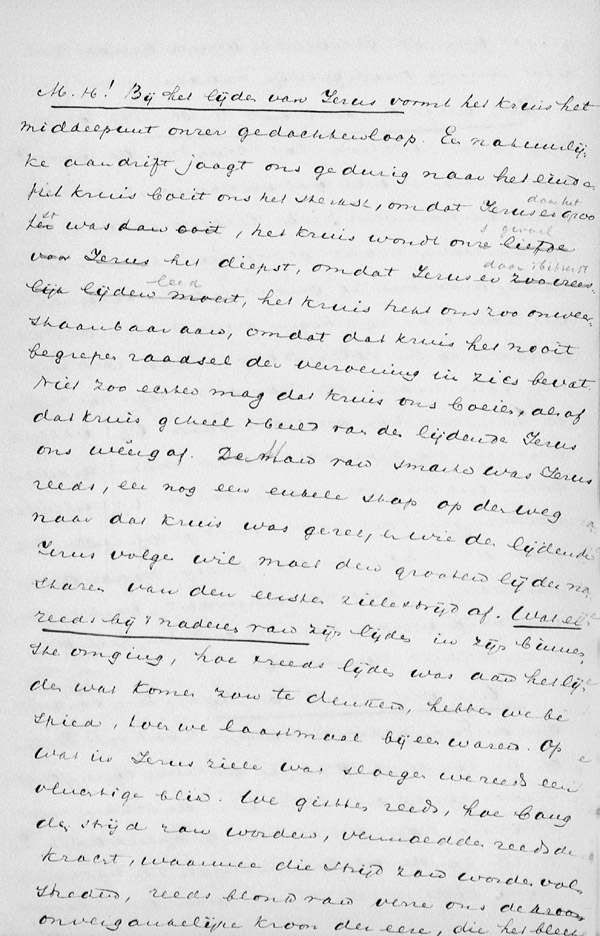 M. H! Bij het lijden van Jezus vormt het kruis het
middelpunt onzer gedachtenloop. Een natuurlij-
ke aandrift jaagt ons gedurig naar het einde.
Het kruis boeit ons het sterkst, omdat Jezus er daar het groo
st was dan ooit, het kruis wondt onze liefde
voor Jezus het diepst, omdat Jezus er daar 't bitterst zoo vrees-
lijk lijden moest, leed het kruis trekt ons zoo onweer-
staanbaar aan, omdat dat kruis het nooit
begrepen raadsel der verzoening in zich bevat.
Niet zoo echter mag dat kruis ons boeien, als of
dat kruis geheel 't beeld van den lijdende Jezus
ons weergaf. De Man van smarte was Jezus
reeds, eer nog een enkele stap op den weg
naar dat kruis was gezet, en wie den lijdende
Jezus volgen wil moet den grooten lijder na-
staren van den eersten zielestrijd af. Wat er
reeds bij 't naderen van zijn lijden in zijn binnen-
ste omging, hoe 't reeds lijden was aan het lij-
den wat komen zou te denken, hebben we be
spied, toen we laatstmaal bijeen waren. Op
wat in Jezus ziele was sloegen we reeds een
vluchtige blik. We gisten reeds, hoe bang
de strijd zou worden, vermoedden reeds de
kracht, waarmee die strijd zou worden vol-
streden, reeds blonk van verre ons de kroon
onvergankelijke kroon der eere, die het bleek